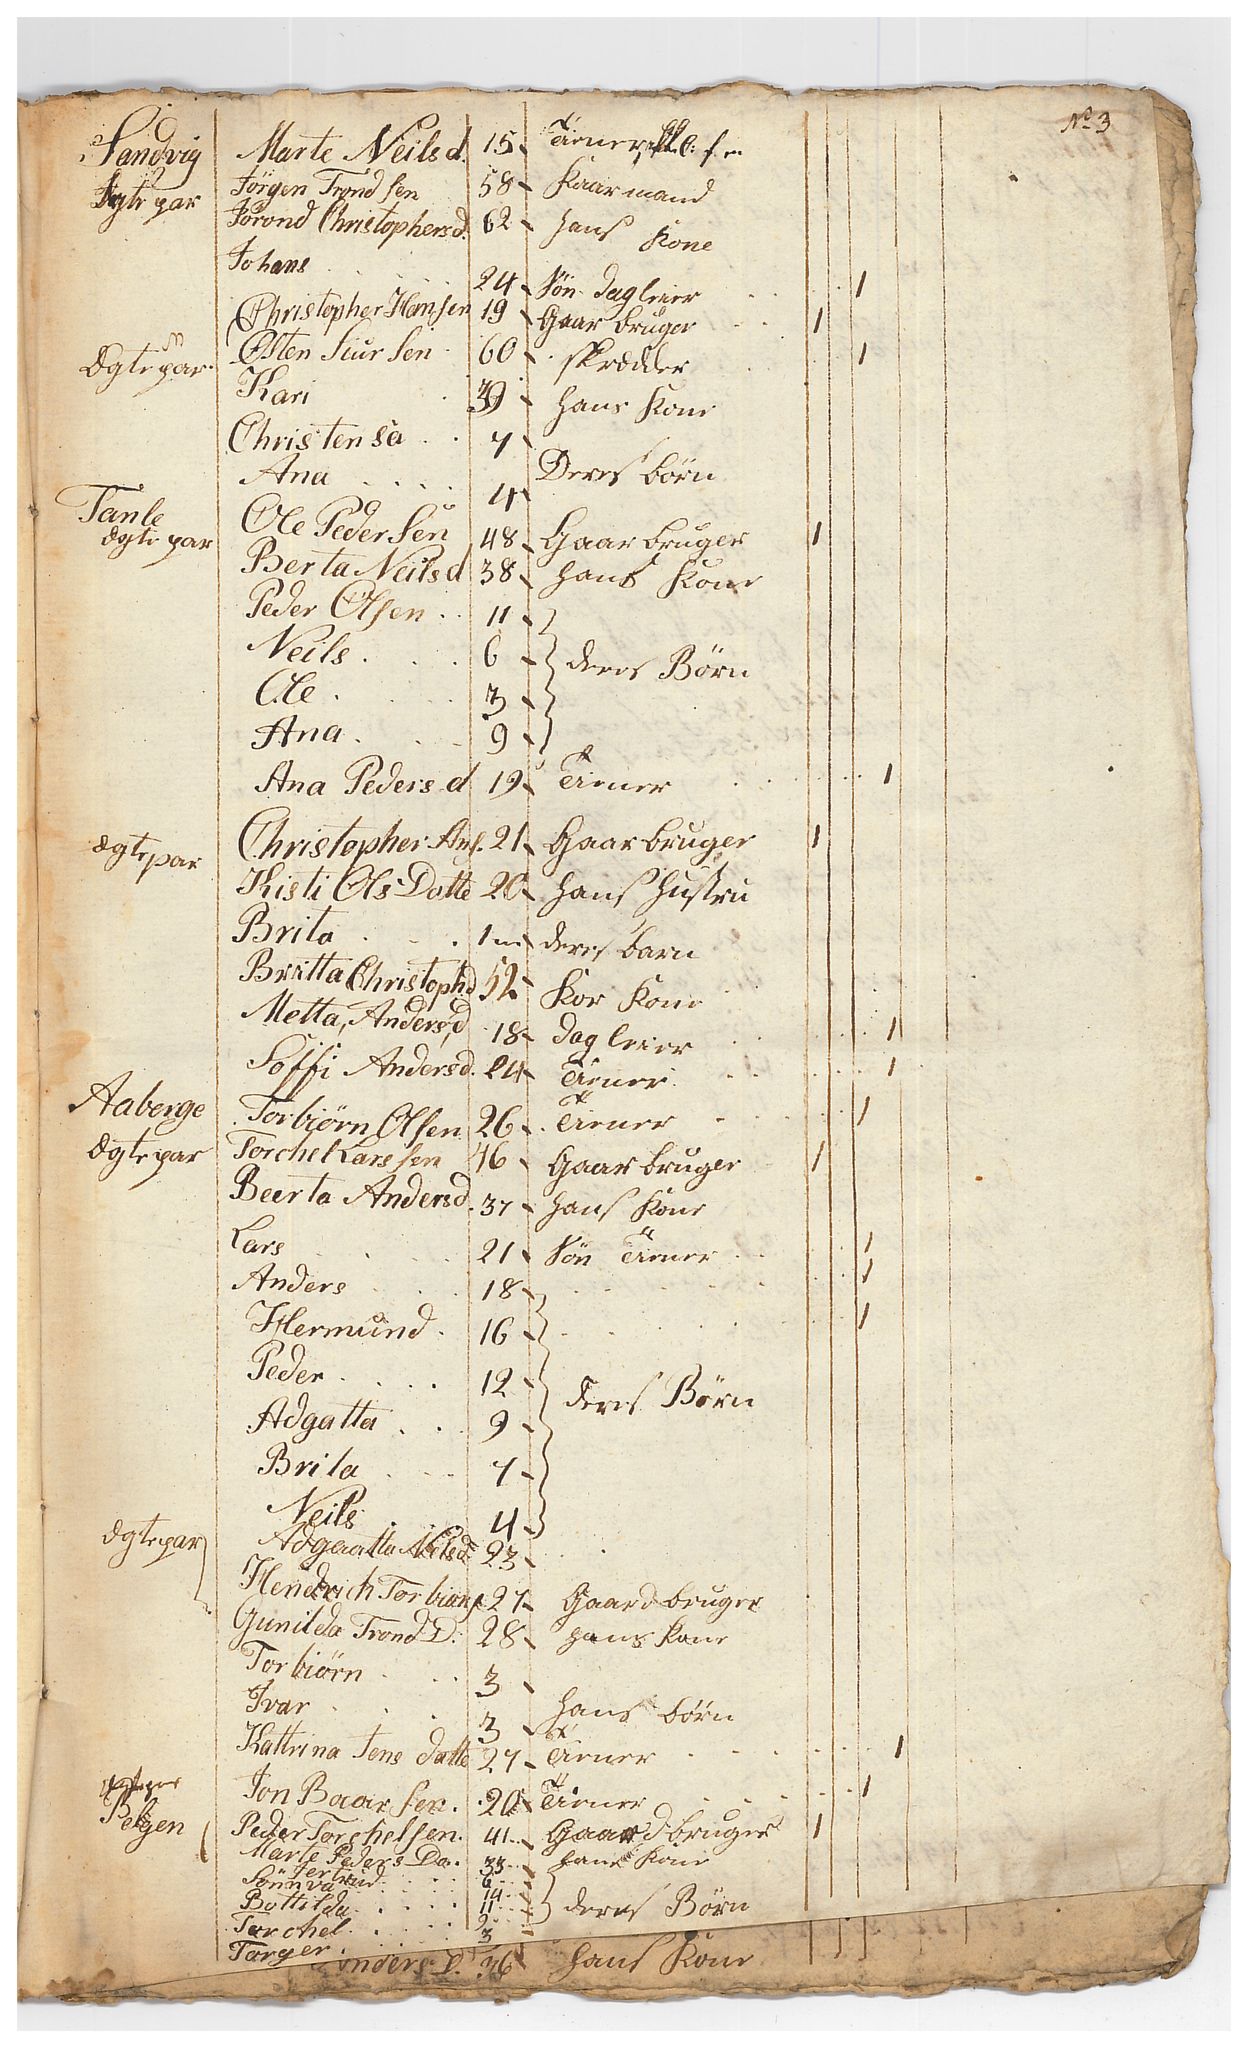 No 3
Sandvig Marte Neils d. 15 Tiener
Ægte par Jörgen Trond sen 58 Kaarmand
Jorond Christophersd. 62 hans Kone
Johans 24 Sön dagleier 1
Christopher Hansen 19 Gaar bruger 1
Ægte par Østen Siur sen 60 skrædder 1
Kari 39 hans Kone
Christensa 7
Ana 4 Deres börn
Tanle
ægte par Ole Peder Sen 48 Gaar bruger 1
Berta Neils d 38 hans Kone
Peder Olsen 11
Neils 6 deres Börn
Ole 3
Ana 9
Ana Peders d 19 Tiener 1
ægte par Christopher Ans. 21 Gaar bruger 1
Kisti Ols Datte 20 hans hustru
Brita 1 deres barn
Britta Christophd 52 Kor Kone
Metta Anders d 18 dag leier 1
Söffi Andersd. 24 Tiener 1
Aaberge Torbiörn Olsen 26 Tiener 1
Ægte par Torchel Lars sen 46 Gaar bruger 1
Beerta Andersd. 37 hans Kone
Lars 21 Sön Tiener 1
Anders 18 1
Hermund 16 1
Peder 12 deres Börn
Adgatta 9
Brita 7
Neils 4
Ægte par Adgaatta Neilsd 23
Hendrich Torbiørs 27 Gaard bruger
Gunilda Trond D. 28 hans Kone
Torbiörn 3
Ivar 3 hans börn
Kattrina Jens datte 27 Tiener 1
Jon Baar sen. 20 Tiener 1
Belgen Peder Torchelsen. 41 Gaard bruger 1
Marte Peders Da. 33 hans Kone
Jertrud 6
Sönnva 14
Bottilda 11 deres Börn
Torchel 9
Torger 3
Anders D. 36 hans Kone